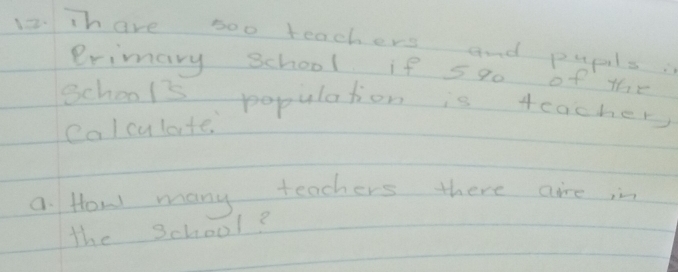 12. Thare 500 teachers and pupils in
Primary School if 5% of the
School's population is teacher,
Calculate.
a. How many teachers there are in
the School?